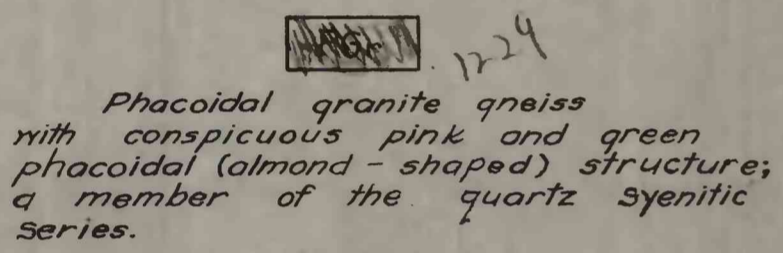 1224
Phacoidal granite gneiss
with conspicuous pink and green
phacoidal (almond - shaped) structure;
a member of the quartz syenitic
series.